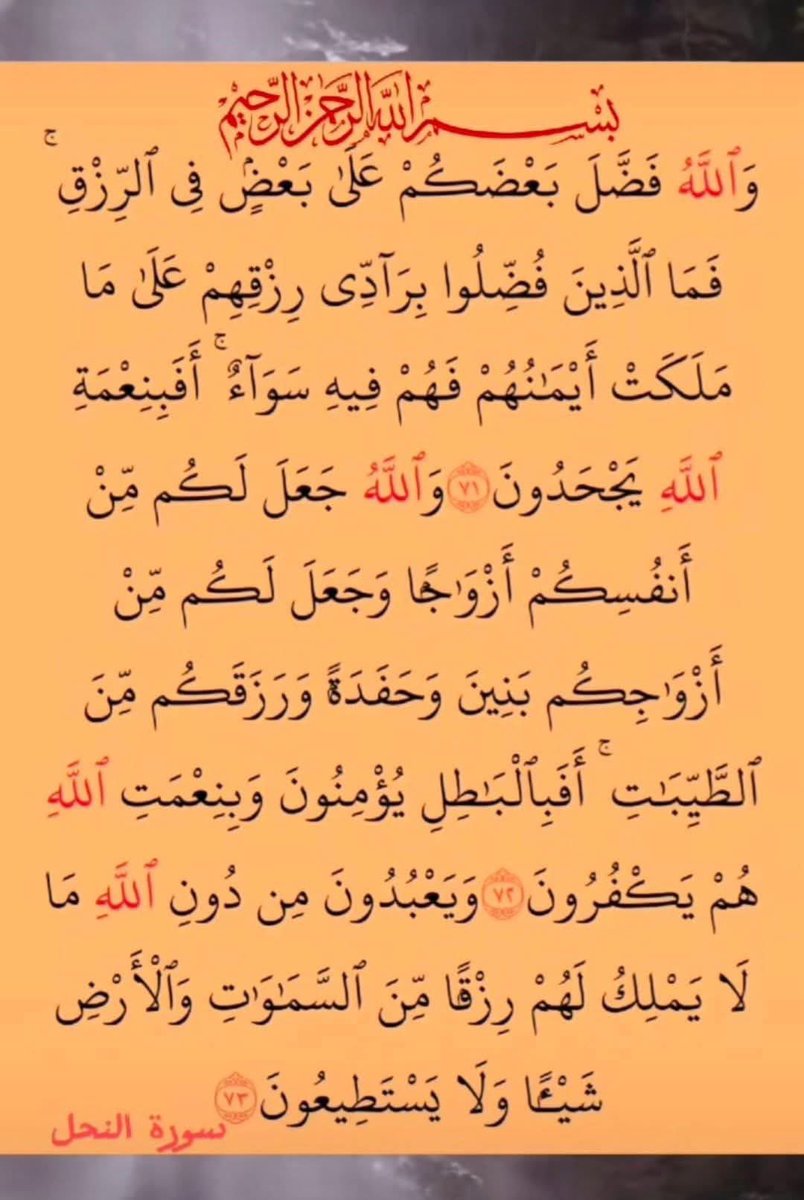 بسم الله الرحمن الرحيم
وَٱللَّهُ فَضَّلَ بَعْضَكُمْ عَلَىٰ بَعْضٍ فِى ٱلرِّزْقِ ۚ
فَمَا ٱلَّذِينَ فُضِّلُوا بِرَآدِّى رِزْقِهِمْ عَلَىٰ مَا
مَلَكَتْ أَيْمَٰنُهُمْ فَهُمْ فِيهِ سَوَآءٌ ۚ أَفَبِنِعْمَةِ
ٱللَّهِ يَجْحَدُونَ ٧١ وَٱللَّهُ جَعَلَ لَكُم مِّنْ
أَنفُسِكُمْ أَزْوَٰجًا وَجَعَلَ لَكُم مِّنْ
أَزْوَٰجِكُم بَنِينَ وَحَفَدَةً وَرَزَقَكُم مِّنَ
ٱلطَّيِّبَٰتِ ۚ أَفَبِٱلْبَٰطِلِ يُؤْمِنُونَ وَبِنِعْمَتِ ٱللَّهِ
هُمْ يَكْفُرُونَ ٧٢ وَيَعْبُدُونَ مِن دُونِ ٱللَّهِ مَا
لَا يَمْلِكُ لَهُمْ رِزْقًا مِّنَ ٱلسَّمَٰوَٰتِ وَٱلْأَرْضِ
شَيْـًٔا وَلَا يَسْتَطِيعُونَ ٧٣
سورة النحل